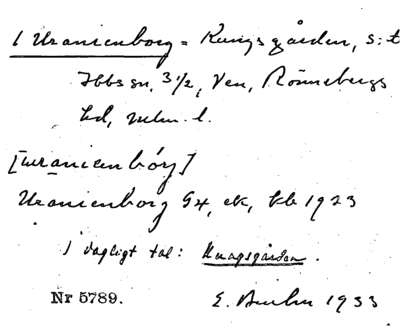 1 Uranienborg = Kungsgården, s:t
Ibbs sn, 3 1/2, Ven, Rönnebergs
hd, Malm. l.
[uraniembórj]
Uranienborg Gx, ek, kb 1923
I dagligt tal: Kungsgården.
Nr 5789. E. 1933